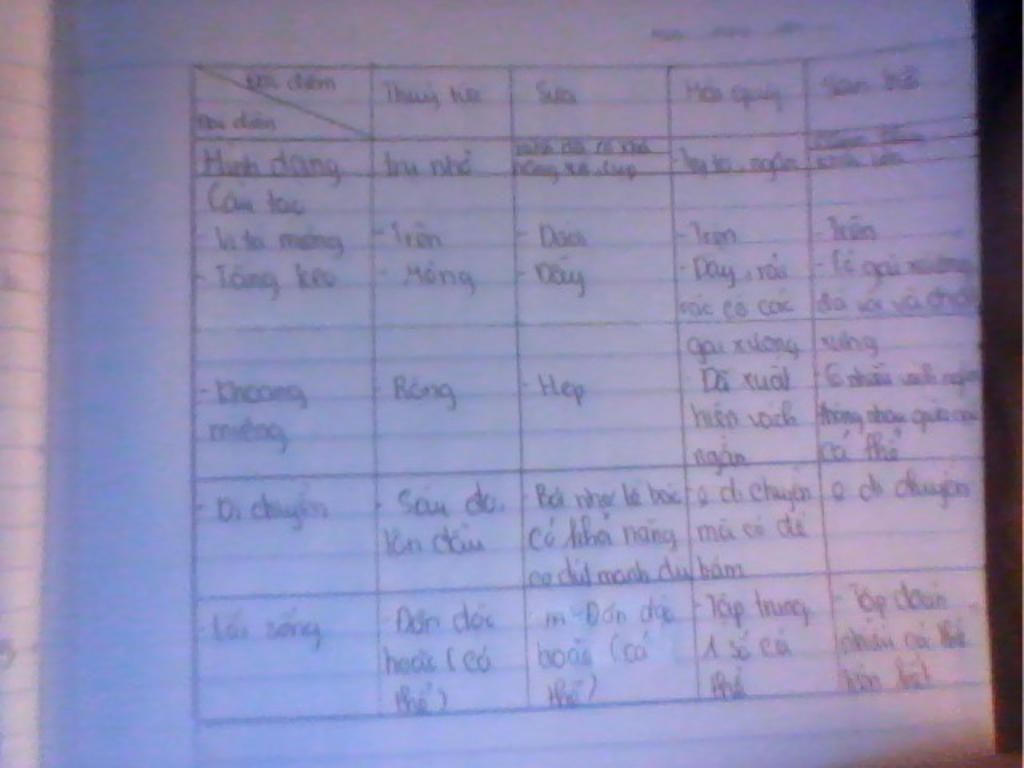 Đặc điểm
Đại diện
Thuỷ tức
Sứa
Hải quỳ
San hô
Hình dạng
trụ nhỏ
trụ to, ngắn
Cấu tạo
- Vị trí miệng
- Trên
- Dưới
- Trên
- Trên
- Tầng keo
- Mỏng
- Dày
- Dày, rải
rác có các
gai xương
- Có gai xương
đá vôi và chất
xừng
- Khoang
miệng
- Rộng
- Hẹp
- Đã xuất
hiện vách
ngăn
- Có nhiều vách ngăn
thông nhau giữa các
cá thể
- Di chuyển
- Sâu đo,
lộn đầu
- Bơi nhờ tế bào
có khả năng
co dút mạnh dù
- o di chuyển
mà có đế
bám
- o di chuyển
- Lối sống
- Đơn độc
hoặc (cá
thể)
- m Đơn độc
hoặc (cá
thể)
- Tập trung
1 số cá
thể
- Tập đoàn
nhiều cá thể
liên kết